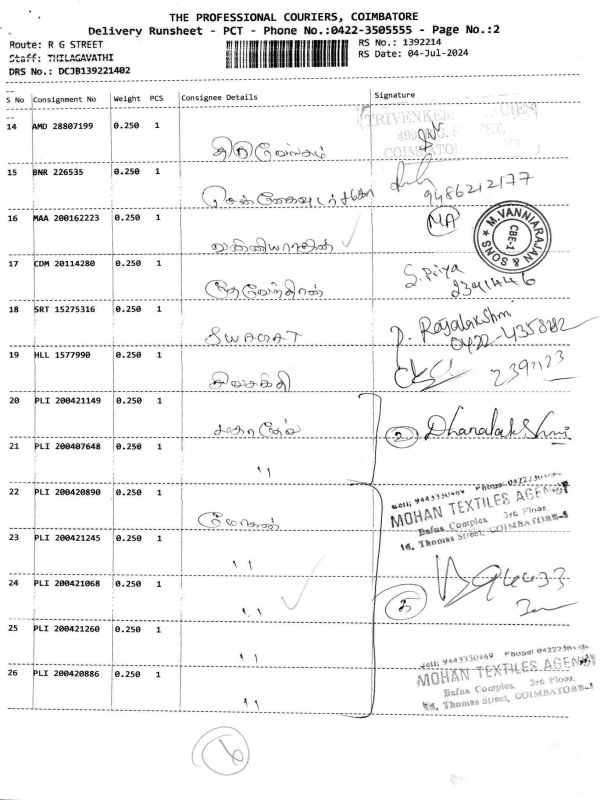 THE PROFESSIONAL COURIERS, COIMBATORE
Delivery Runsheet - PCT - Phone No.:0422-3505555 - Page No.:2
Route: R G STREET
RS No.: 1392214
Staff: THILAGAVATHI
RS Date: 04-Jul-2024
DRS No.: DCJB139221402
S No Consignment No Weight PCS Consignee Details Signature
14 AMD 28807199 0.250 1
COIMBATORE
15 BNR 226535 0.250 1
9486212177
16 MAA 200162223 0.250 1
NA
M. VANNIARAJAN & SONS CBE-1
17 CDM 20114280 0.250 1 தேவேந்திரன்
S. Piya
2391446
18 SRT 15275316 0.250 1
Rajalakshmi
19 HLL 1577990 0.250 1 சிவசக்தி
20 PLI 200421149 0.250 1 மகாதேவ்
2 Dhanalakshmi
21 PLI 200407648 0.250 1 "
22 PLI 200420890 0.250 1 மோகன்
Cell: 9443330469 Phone:
MOHAN TEXTILES AGENCY
Bafna Complex 3rd Floor
16, Thomas Street, COIMBATORE-1
23 PLI 200421245 0.250 1 "
24 PLI 200421068 0.250 1 "
5
25 PLI 200421260 0.250 1 "
26 PLI 200420886 0.250 1 "
Cell: 9443330469 Phone:
MOHAN TEXTILES AGENCY
Bafna Complex, 3rd Floor,
16, Thomas Street, COIMBATORE-1
6